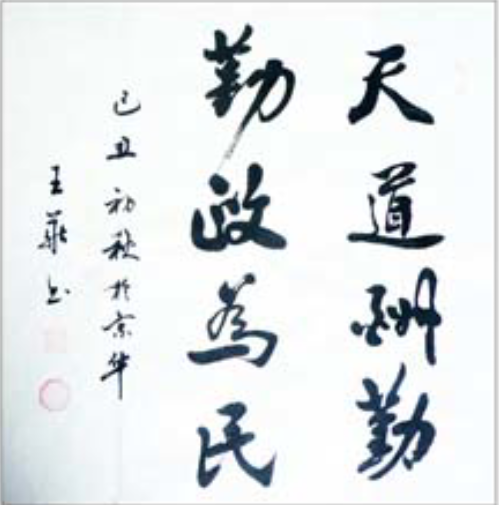 天道酬勤
勤政為民
己丑初秋於京华
王華书